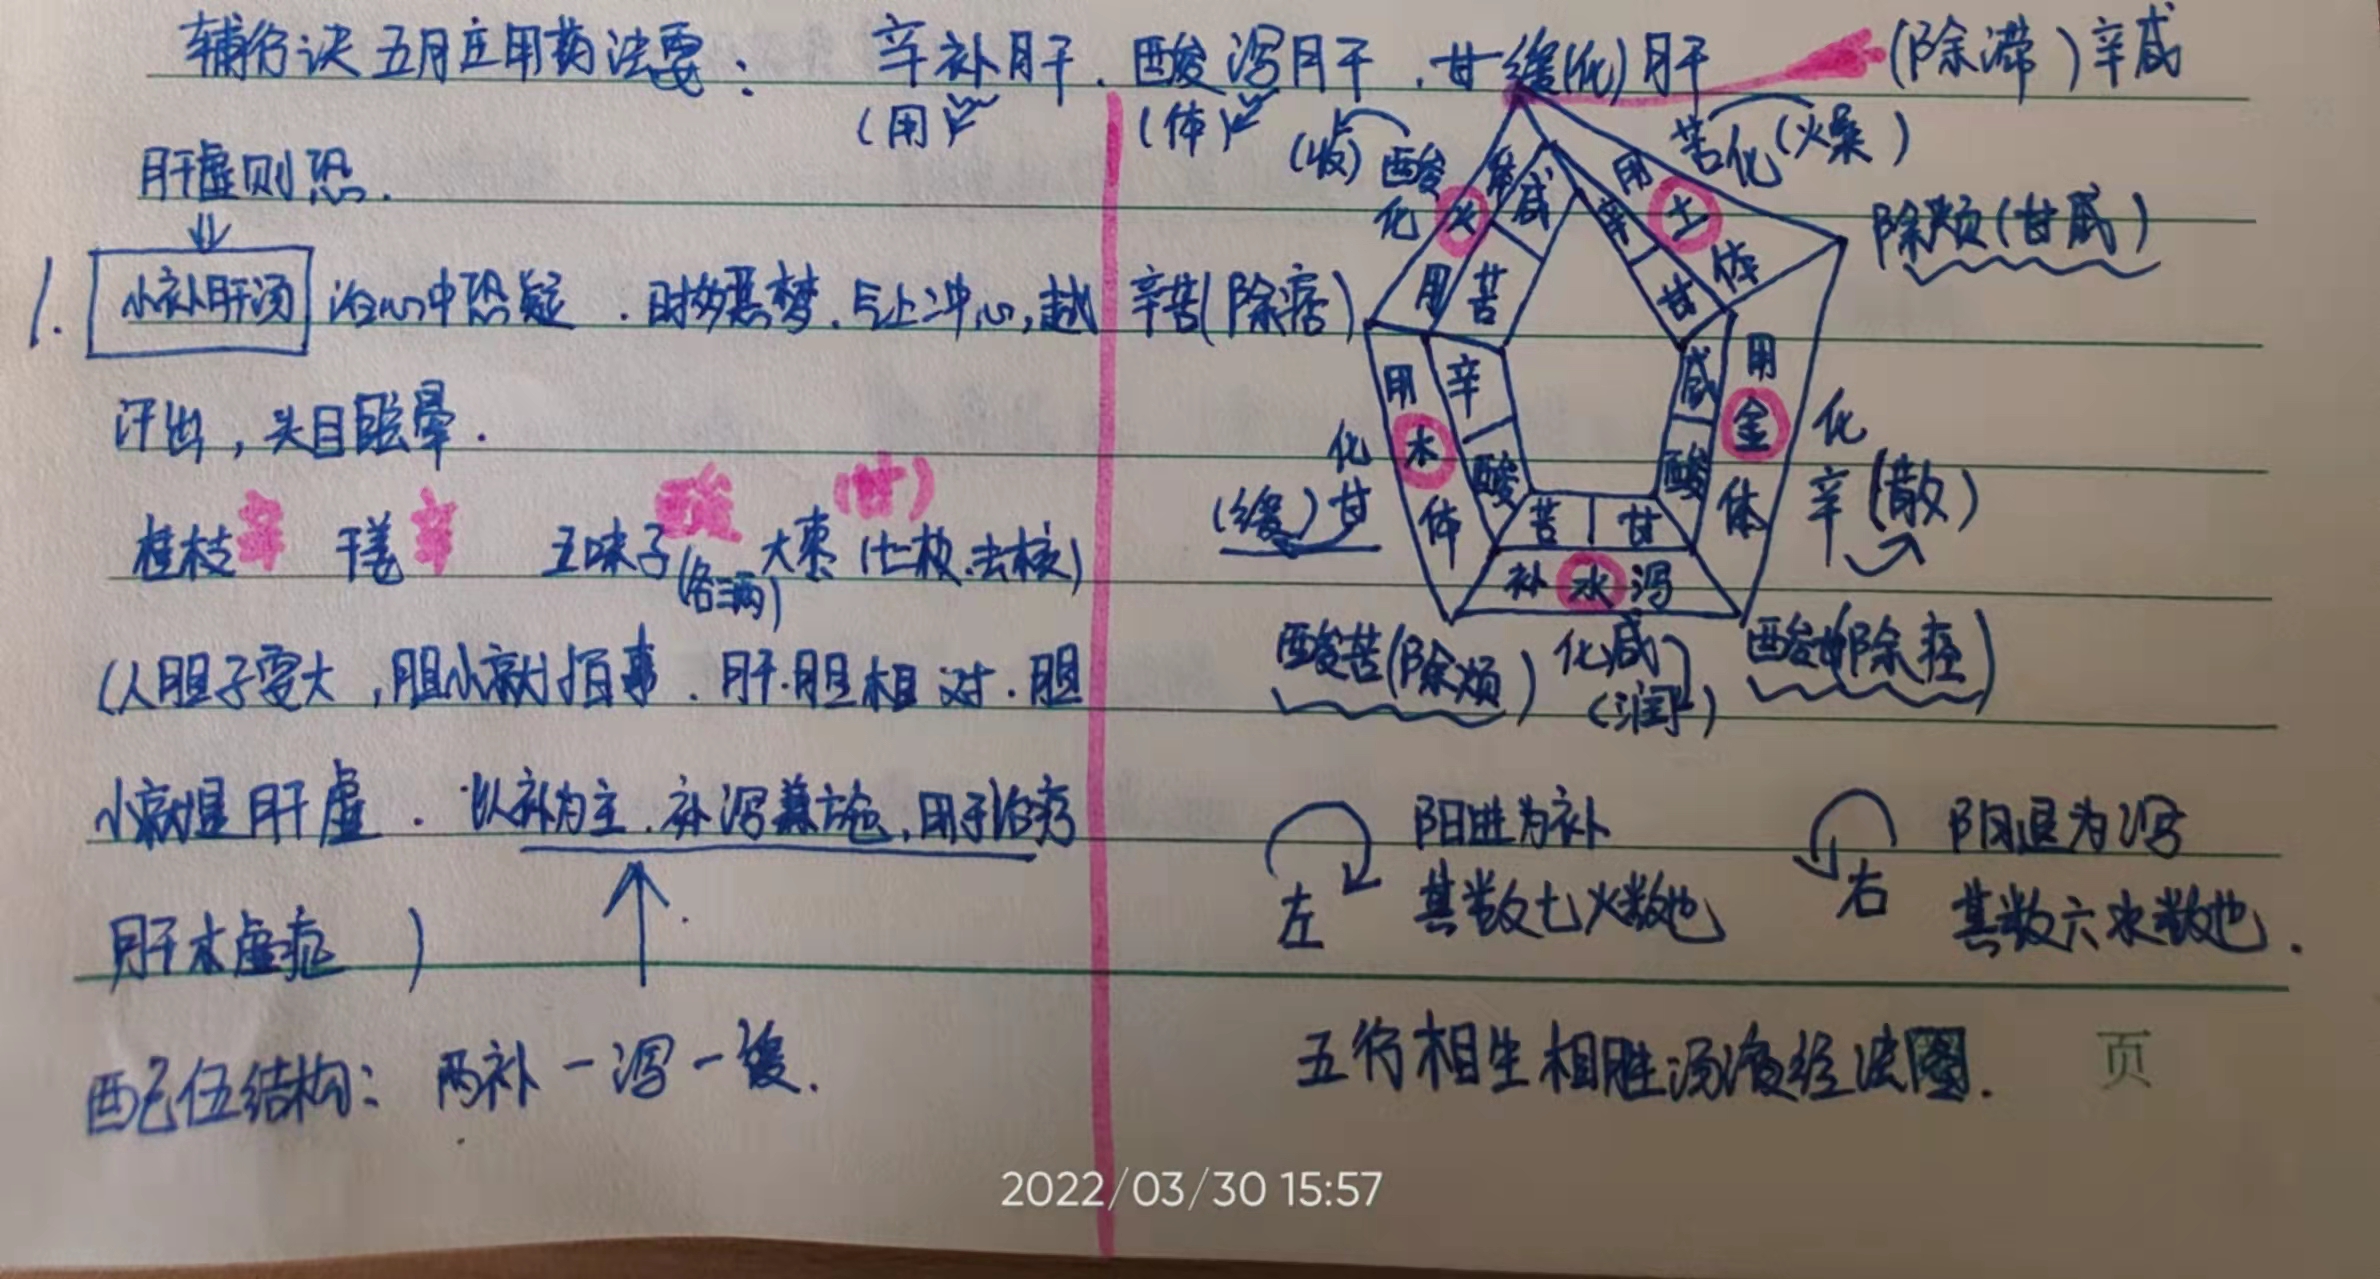 辅行诀五脏用药法要： 辛补肝．酸泻肝．甘缓(化)肝
(用) (体)
肝虚则恐．
1. 小补肝汤 治心中恐疑．时多恶梦．气上冲心，越
汗出，头目眩晕．
辛 辛 酸 (甘)
桂枝 干姜 五味子(各三两) 大枣(七枚.去核)
(人胆子要大，胆小就怕事．肝.胆相对．胆
小就是肝虚．以补为主．补泻兼施，用于治疗
肝木虚症)
配伍结构：两补一泻一缓．
(除滞)辛咸
(收)酸
化
苦化(燥)
除烦(甘咸)
辛苦(除痞)
火 体 咸
用 苦
用 土 体
辛 甘
用 木 体
辛 酸
化
(缓)甘
用 金 体
咸 酸
化
辛(散)
苦 甘
补 水 泻
酸苦(除烦) 化咸
(润)
酸甘(除痉)
左 阳进为补
其数七火数也
右 阴退为泻
其数六水数也．
五行相生相胜汤液经法图． 页
2022/03/30 15:57